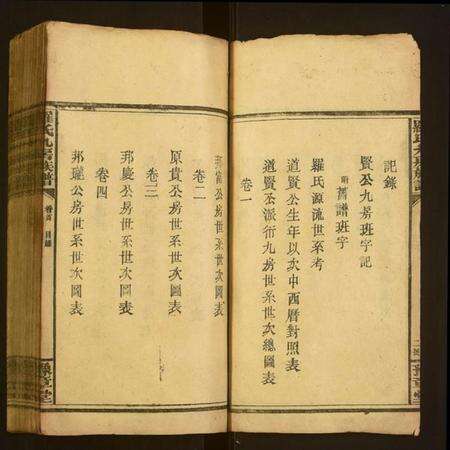 記錄
賢公九房班字記
附舊譜班字
羅氏源流世系考
道賢公生年以次中西曆對照表
道賢公派衍九房世系世次總圖表
卷一
卷二
原貴公房世系世次圖表
卷三
邦慶公房世系世次圖表
卷四
邦瓏公房世系世次圖表
羅氏九房族譜
卷首 目錄
豫章堂